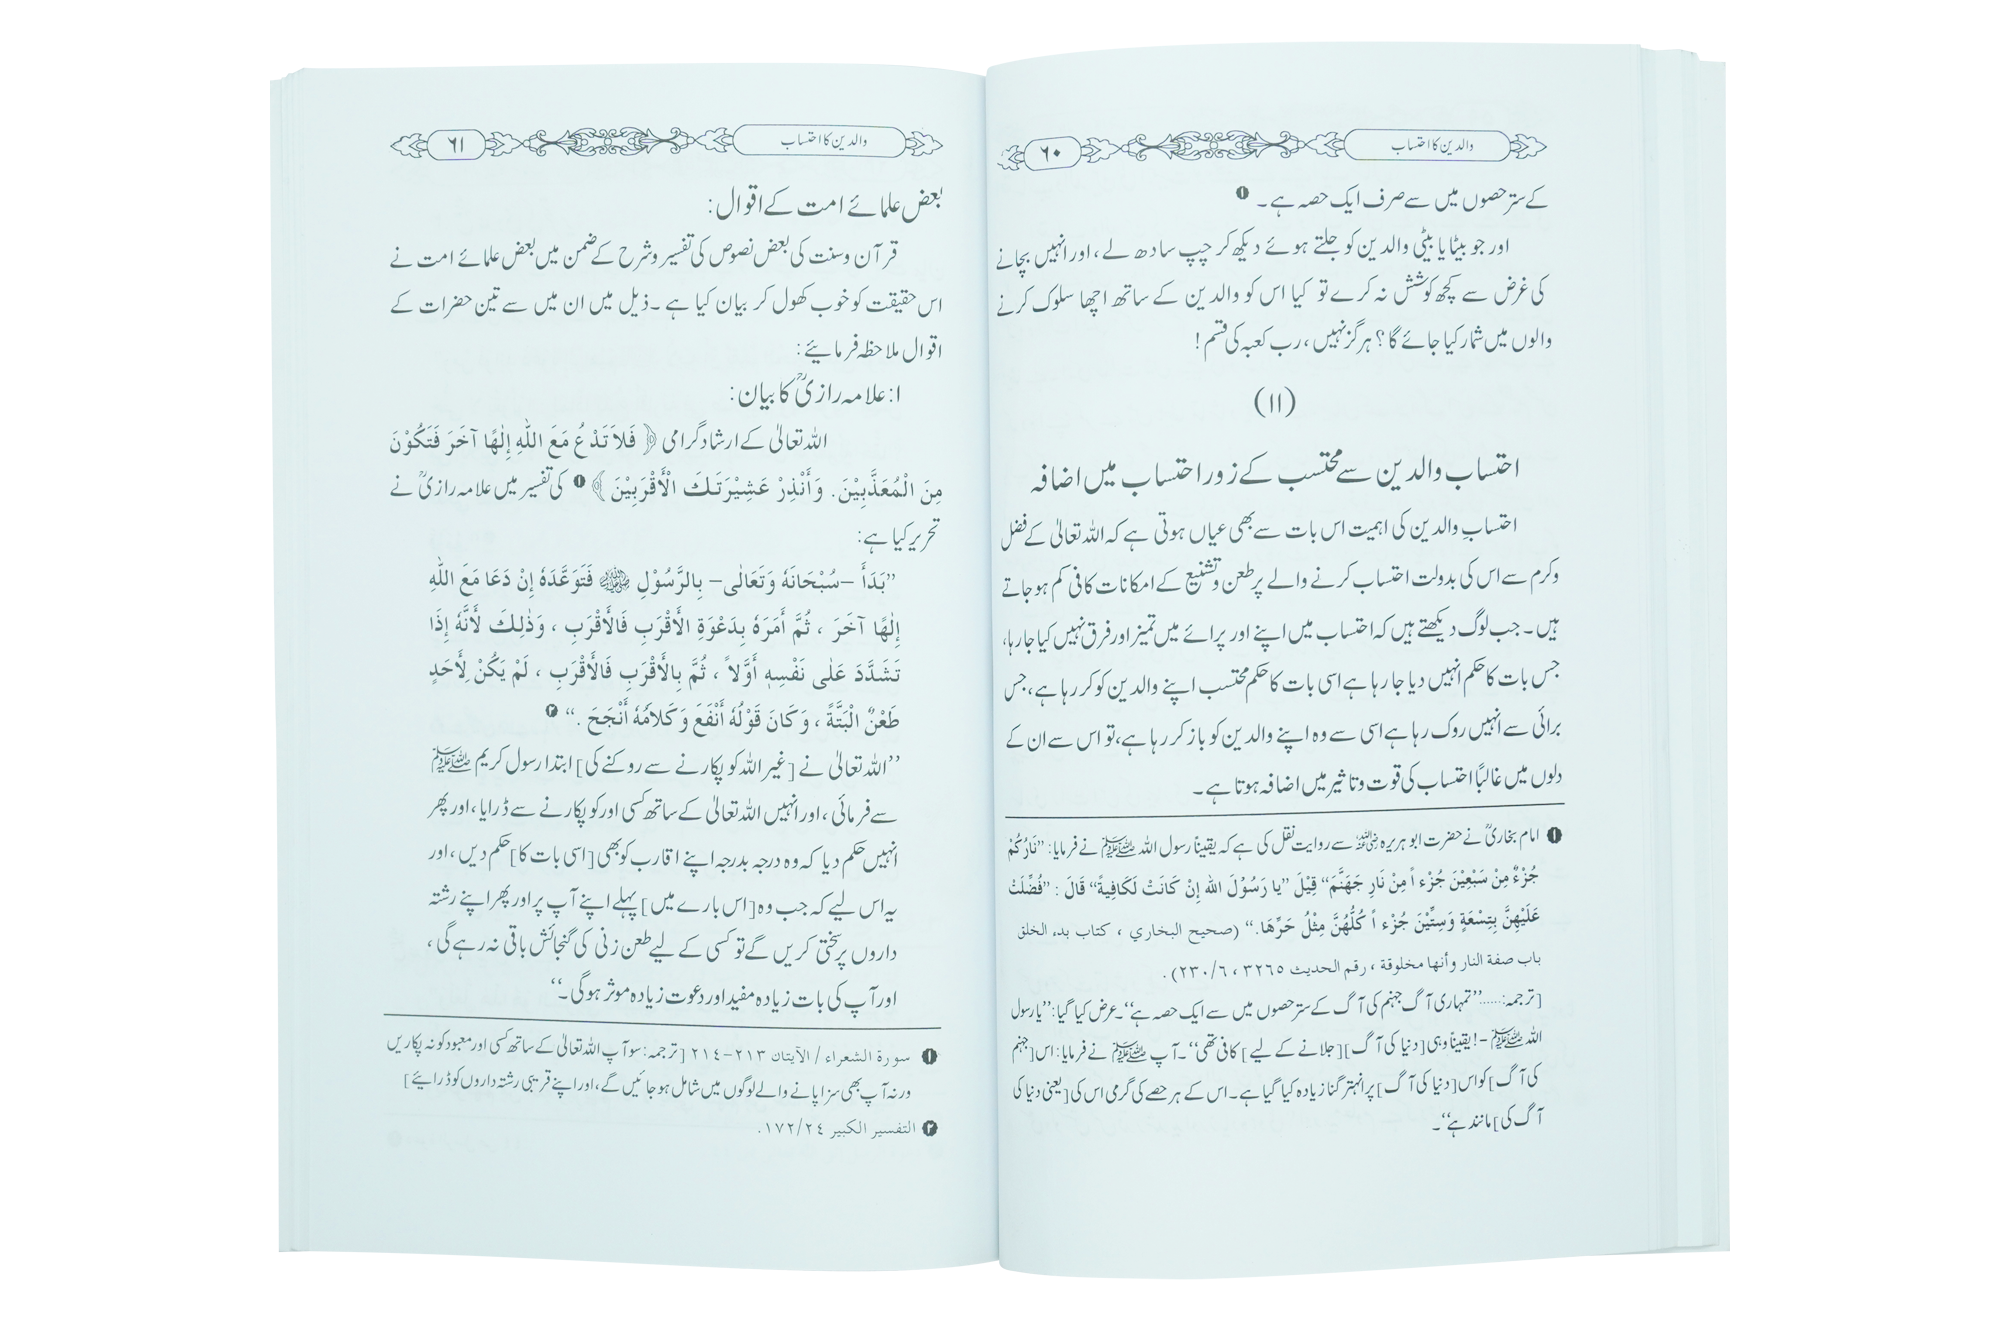 والدین کا احتساب
۶۰
کے ستر حصوں میں سے صرف ایک حصہ ہے۔ ❶
اور جو بیٹا یا بیٹی والدین کو جلتے ہوئے دیکھ کر چپ سادھ لے، اور انہیں بچانے
کی غرض سے کچھ کوشش نہ کرے تو کیا اس کو والدین کے ساتھ اچھا سلوک کرنے
والوں میں شمار کیا جائے گا؟ ہرگز نہیں، رب کعبہ کی قسم!
(۱۱)
احتساب والدین سے محتسب کے زور احتساب میں اضافہ
احتسابِ والدین کی اہمیت اس بات سے بھی عیاں ہوتی ہے کہ اللہ تعالیٰ کے فضل
وکرم سے اس کی بدولت احتساب کرنے والے پر طعن وتشنیع کے امکانات کافی کم ہو جاتے
ہیں۔ جب لوگ دیکھتے ہیں کہ احتساب میں اپنے اور پرائے میں تمیز اور فرق نہیں کیا جا رہا،
جس بات کا حکم انہیں دیا جا رہا ہے اسی بات کا حکم محتسب اپنے والدین کو کر رہا ہے، جس
برائی سے انہیں روک رہا ہے اسی سے وہ اپنے والدین کو باز کر رہا ہے، تو اس سے ان کے
دلوں میں غالبًا احتساب کی قوت وتاثیر میں اضافہ ہوتا ہے۔
❶ امام بخاریؒ نے حضرت ابو ہریرہ رضی اللہ عنہ سے روایت نقل کی ہے کہ یقیناً رسول اللہ ﷺ نے فرمایا: ’’نَارُكُمْ
جُزْءٌ مِنْ سَبْعِيْنَ جُزْءاً مِنْ نَارِ جَهَنَّمَ‘‘ قِيْلَ ’’يا رَسُوْلَ الله إِنْ كَانَتْ لَكَافِيةً‘‘ قَالَ : ’’فُضِّلَتْ
عَلَيْهِنَّ بِتِسْعَةٍ وَسِتِّيْنَ جُزْءاً كُلُّهُنَّ مِثْلُ حَرِّهَا.‘‘ (صحيح البخاري ، كتاب بدء الخلق
باب صفة النار وأنها مخلوقة ، رقم الحديث ٣٢٦٥ ، ٢٣٠/٦) .
[ترجمہ:......’’تمہاری آگ جہنم کی آگ کے ستر حصوں میں سے ایک حصہ ہے‘‘۔ عرض کیا گیا: ’’یا رسول
اللہ ﷺ -! یقیناً وہی [دنیا کی آگ] [جلانے کے لیے] کافی تھی‘‘۔ آپ ﷺ نے فرمایا: اس [جہنم
کی آگ] کو اس [دنیا کی آگ] پر انہتر گنا زیادہ کیا گیا ہے۔ اس کے ہر حصے کی گرمی اس کی [یعنی دنیا کی
آگ کی] مانند ہے‘‘۔
والدین کا احتساب
۶۱
بعض علمائے امت کے اقوال:
قرآن وسنت کی بعض نصوص کی تفسیر وشرح کے ضمن میں بعض علمائے امت نے
اس حقیقت کو خوب کھول کر بیان کیا ہے۔ ذیل میں ان میں سے تین حضرات کے
اقوال ملاحظہ فرمائیے:
۱: علامہ رازیؒ کا بیان:
اللہ تعالیٰ کے ارشاد گرامی ﴿ فَلاَ تَدْعُ مَعَ اللّٰهِ إِلٰهًا آخَرَ فَتَكُوْنَ
مِنَ الْمُعَذَّبِيْنَ. وَأَنْذِرْ عَشِيْرَتَكَ الْأَقْرَبِيْنَ ﴾ ❶ کی تفسیر میں علامہ رازیؒ نے
تحریر کیا ہے:
’’بَدَأَ –سُبْحَانَهٗ وَتَعَالٰى– بِالرَّسُوْلِ ﷺ فَتَوَعَّدَهٗ إِنْ دَعَا مَعَ اللّٰهِ
إِلٰهًا آخَرَ ، ثُمَّ أَمَرَهٗ بِدَعْوَةِ الأَقْرَبِ فَالأَقْرَبِ ، وَذٰلِكَ لأَنَّهٗ إِذَا
تَشَدَّدَ عَلٰى نَفْسِهٖ أَوَّلاً ، ثُمَّ بِالأَقْرَبِ فَالأَقْرَبِ ، لَمْ يَكُنْ لِأَحَدٍ
طَعْنٌ الْبَتَّةَ ، وَكَانَ قَوْلُهٗ أَنْفَعَ وَكَلاَمُهٗ أَنْجَحَ .‘‘ ❷
’’اللہ تعالیٰ نے [غیر اللہ کو پکارنے سے روکنے کی] ابتدا رسول کریم ﷺ
سے فرمائی، اور انہیں اللہ تعالیٰ کے ساتھ کسی اور کو پکارنے سے ڈرایا، اور پھر
انہیں حکم دیا کہ وہ درجہ بدرجہ اپنے اقارب کو بھی [اسی بات کا] حکم دیں، اور
یہ اس لیے کہ جب وہ [اس بارے میں] پہلے اپنے آپ پر اور پھر اپنے رشتہ
داروں پر سختی کریں گے تو کسی کے لیے طعن زنی کی گنجائش باقی نہ رہے گی،
اور آپ کی بات زیادہ مفید اور دعوت زیادہ موثر ہوگی۔‘‘
❶ سورة الشعراء / الآيتان ٢١٣–٢١٤ [ترجمہ: سو آپ اللہ تعالیٰ کے ساتھ کسی اور معبود کو نہ پکاریں
ورنہ آپ بھی سزا پانے والے لوگوں میں شامل ہو جائیں گے، اور اپنے قریبی رشتہ داروں کو ڈرائیے]
❷ التفسير الكبير ١٧٢/٢٤.